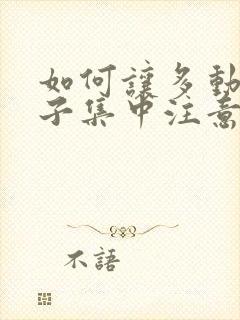 如何讓多動
子集中注意
不語